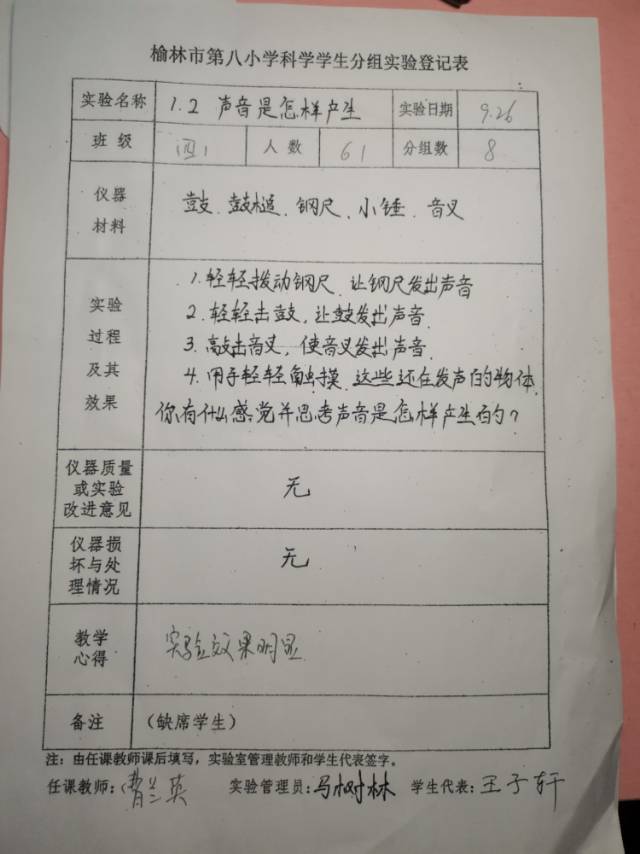 榆林市第八小学科学学生分组实验登记表
实验名称 1.2 声音是怎样产生 实验日期 9.26
班级 四1 人数 61 分组数 8
仪器材料 鼓、鼓槌、钢尺、小锤、音叉
实验过程及其效果
1.轻轻拨动钢尺、让钢尺发出声音
2.轻轻击鼓,让鼓发出声音.
3.敲击音叉,使音叉发出声音.
4.用手轻轻触摸这些还在发声的物体,
你有什么感觉并思考声音是怎样产生的?
仪器质量或实验改进意见 无
仪器损坏与处理情况 无
教学心得 实验效果明显
备注 (缺席学生)
注:由任课教师课后填写,实验室管理教师和学生代表签字。
任课教师:曹兰英 实验管理员:马树林 学生代表:王子轩